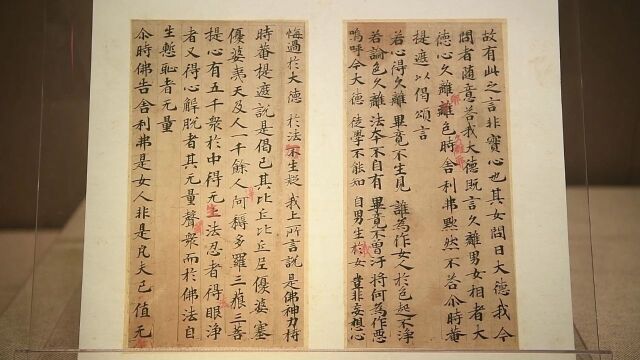 故有此之言非實心也其女問曰大德我今
問者随意荅我大德既言久離男女相者大
德心久離離色時舍利弗黙然不荅尒時菴
提遮以偈頌言
若心得久離 畢竟不生見 誰為作女人 於色起不淨
若論色久離 法本不自有 畢竟不曽汙 將何為作惡
嗚呼今大德 徒學不能知 自男生於女 豈非妄想心
悔過於大德 於法不生疑 我上所言説 是佛神力持
時菴提遮説是偈已其比丘比丘尼優婆塞
優婆夷天及人一千餘人阿耨多羅三藐三菩
提心有五千衆於中得无生法忍者得眼淨
者又得心解脫者其无量聲衆而於佛法自
生慙恥者无量
尒時佛告舍利弗是女人非是凡夫已值无